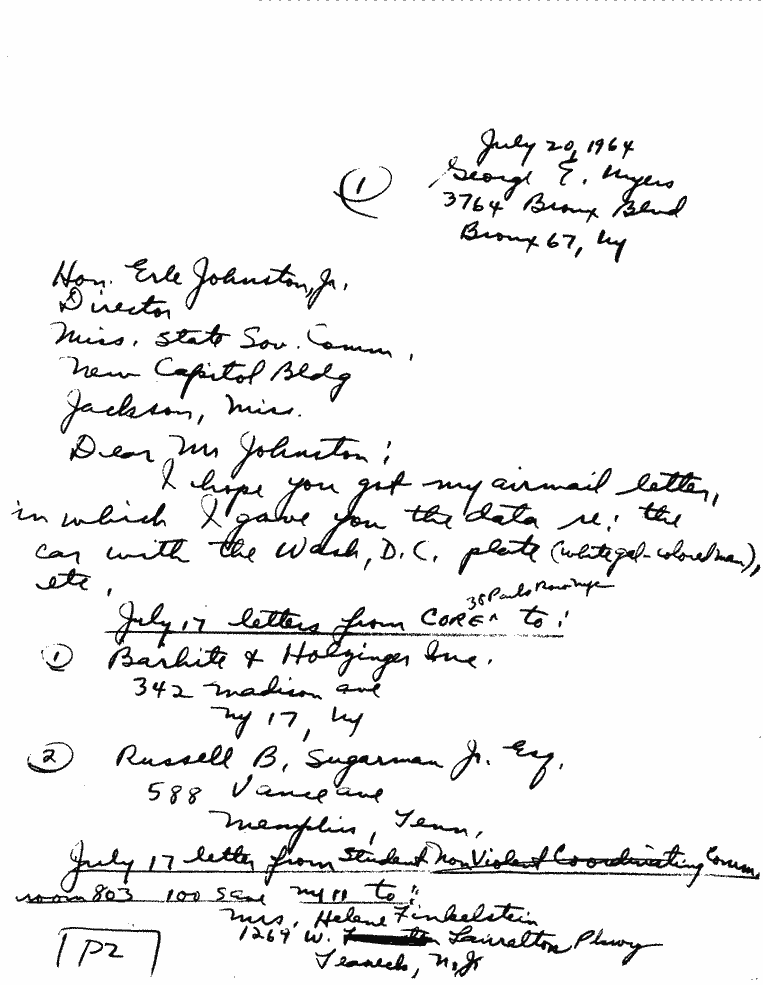 July 20, 1964
① George E. Myers
3764 Bronx Blvd
Bronx 67, NY
Hon. Erle Johnston, Jr.
Director
Miss. State Sov. Comm.
New Capitol Bldg
Jackson, Miss.
Dear Mr Johnston:
I hope you got my airmail letter,
in which I gave you the data re: the
car with the Wash, D.C. plate (white gal-colored man),
etc.
38 Park Row nyc
July 17 letters from CORE ^ to:
① Barhite & Holzinger Inc.
342 Madison ave
NY 17, NY
② Russell B. Sugarman Jr. Esq.
588 Vance ave
Memphis, Tenn.
July 17 letter from Student NonViolent Coordinating Comm.
room 803 100 5 ave NY 11 to:
Mrs. Helene Finkelstein
1269 W. Laurelton Pkwy
Teaneck, N.J.
P2